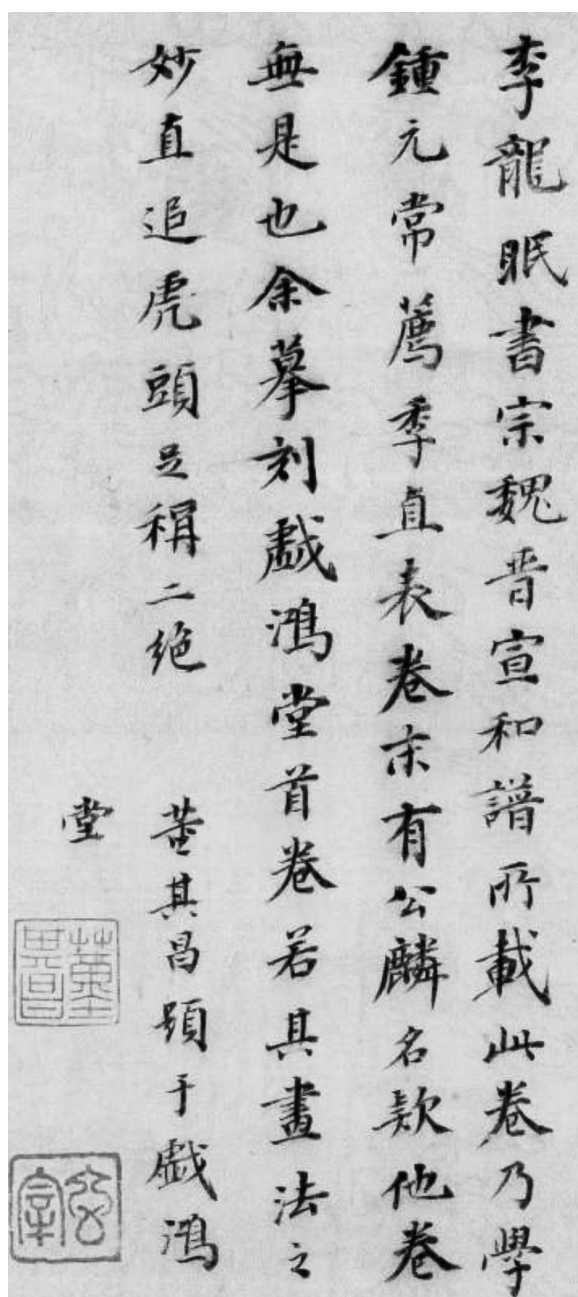 李龍眠書宗魏晋宣和譜所載此卷乃學
鍾元常薦季直表卷末有公麟名款他卷
無是也余摹刻戲鴻堂首卷若其畫法之
妙直追虎頭足稱二絕
董其昌題于戲鴻
堂
董其昌